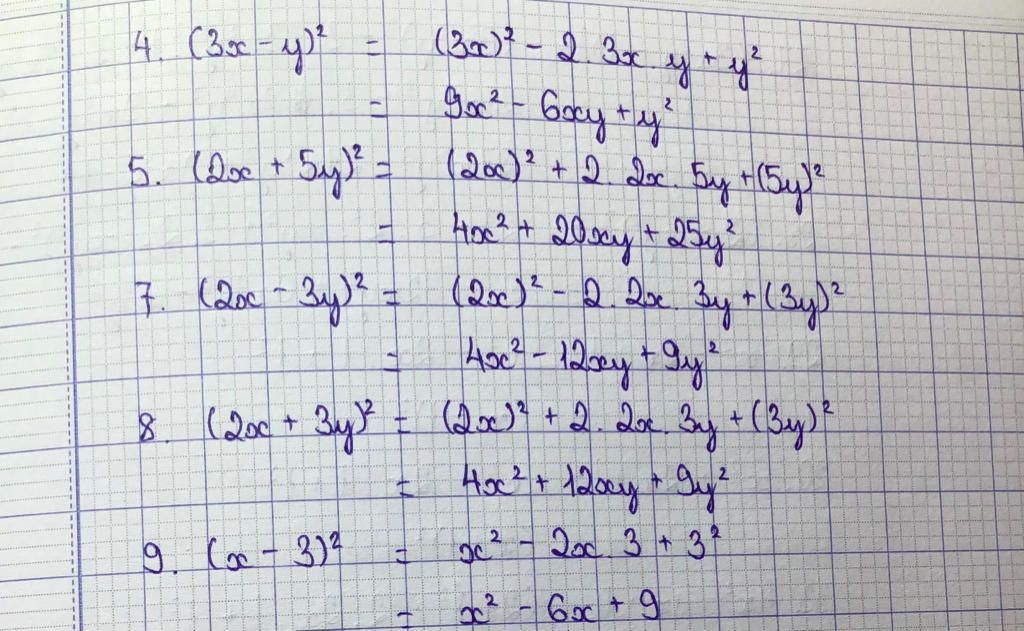 4. (3x - y)² = (3x)² - 2. 3x. y + y²
= 9x² - 6xy + y²
5. (2x + 5y)² = (2x)² + 2. 2x. 5y + (5y)²
= 4x² + 20xy + 25y²
7. (2x - 3y)² = (2x)² - 2. 2x. 3y + (3y)²
= 4x² - 12xy + 9y²
8. (2x + 3y)² = (2x)² + 2. 2x. 3y + (3y)²
= 4x² + 12xy + 9y²
9. (x - 3)² = x² - 2x. 3 + 3²
= x² - 6x + 9